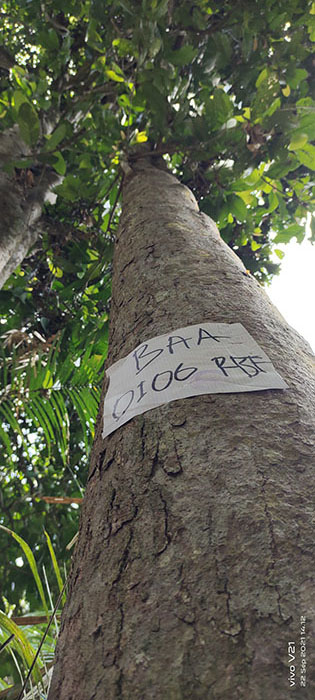 BAA
0106 RBF
vivo V21
22 Sep 2021 14:12